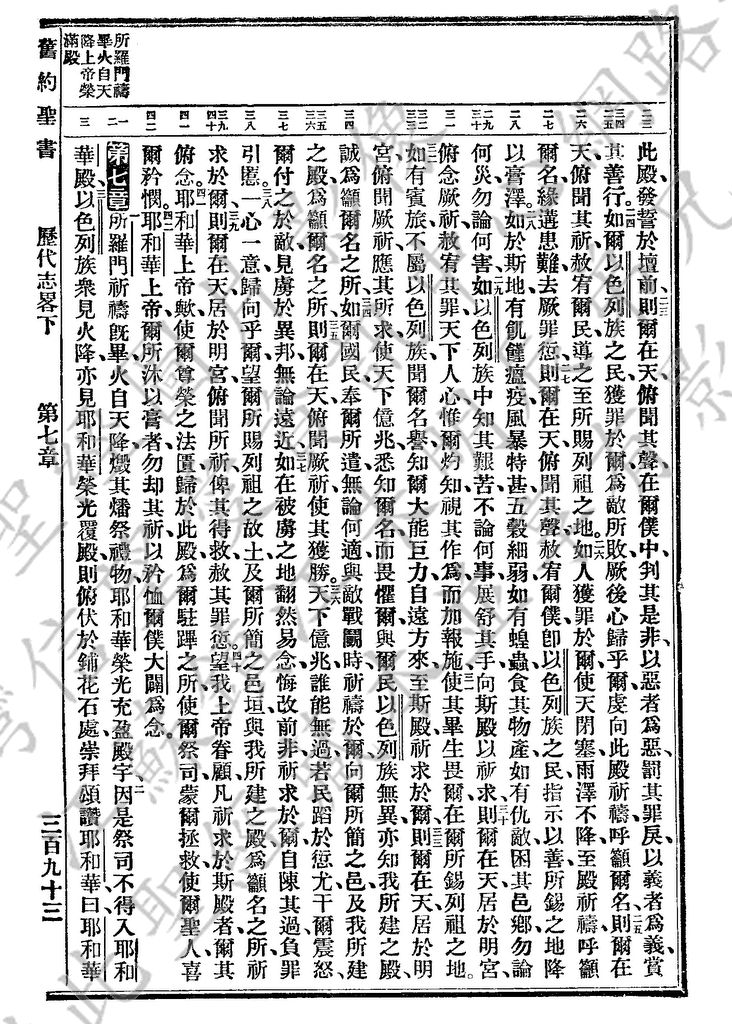 所羅門禱
畢火自天
降上帝榮
滿殿
此殿發誓於壇前、則爾在天、俯聞其聲、在爾僕中、判其是非、以惡者爲惡、罰其罪戾、以義者爲義、賞
其善行、如爾以色列族之民、獲罪於爾、爲敵所敗、厥後心歸乎爾、虔向此殿祈禱、呼籲爾名、則爾在
天俯聞其祈、赦宥爾民、導之至所賜列祖之地、如人獲罪於爾、使天閉塞、雨澤不降、至殿祈禱、呼籲
爾名、緣遘患難、去厥罪愆、則爾在天、俯聞其聲、赦宥爾僕、卽以色列族之民、指示以善、所錫之地、降
以膏澤、如於斯地、有飢饉瘟疫、風暴特甚、五穀細弱、如有蝗蟲食其物產、如有仇敵困其邑鄉、勿論
何災、勿論何害、如以色列族中、知其艱苦、不論何事、展舒其手、向斯殿以祈求、則爾在天、居於明宮、
俯念厥祈、赦宥其罪、天下人心、惟爾灼知、視其作爲、而加報施、使其畢生畏爾、在爾所錫列祖之地。
如有賓旅、不屬以色列族、聞爾名譽、知爾大能巨力、自遠方來、至斯殿祈求於爾、則爾在天、居於明
宮、俯聞厥祈、應其所求、使天下億兆、悉知爾名、而畏懼爾、與爾民以色列族無異、亦知我所建之殿、
誠爲籲爾名之所、如爾國民、奉爾所遣、無論何適、與敵戰鬬時、祈禱於爾、向爾所簡之邑、及我所建
之殿、爲籲爾名之所、則爾在天、俯聞厥祈、使其獲勝。天下億兆、誰能無過、若民蹈於愆尤、干爾震怒、
爾付之於敵、見虜於異邦、無論遠近、如在被虜之地、翻然易念、悔改前非、祈求於爾、自陳其過、負罪
引慝、一心一意、歸向乎爾、望爾所賜列祖之故土、及爾所簡之邑垣、與我所建之殿、爲籲名之所、祈
求於爾、則爾在天、居於明宮、俯聞所祈、俾其得救、赦其罪愆。望我上帝眷顧、凡祈求於斯殿者、爾其
俯念。耶和華上帝歟、使爾尊榮之法匱、歸於此殿、爲爾駐蹕之所、使爾祭司、蒙爾拯救、使爾聖人、喜
爾矜憫。耶和華上帝、爾所沐以膏者、勿却其祈、以矜恤爾僕大闢爲念。
第七章 所羅門祈禱旣畢、火自天降、燬其燔祭禮物、耶和華榮光、充盈殿宇、因是祭司不得入耶和
華殿、以色列族衆、見火降、亦見耶和華榮光覆殿、則俯伏於鋪花石處、崇拜頌讚耶和華曰、耶和華
舊約聖書 歷代志畧下 第七章 三百九十三